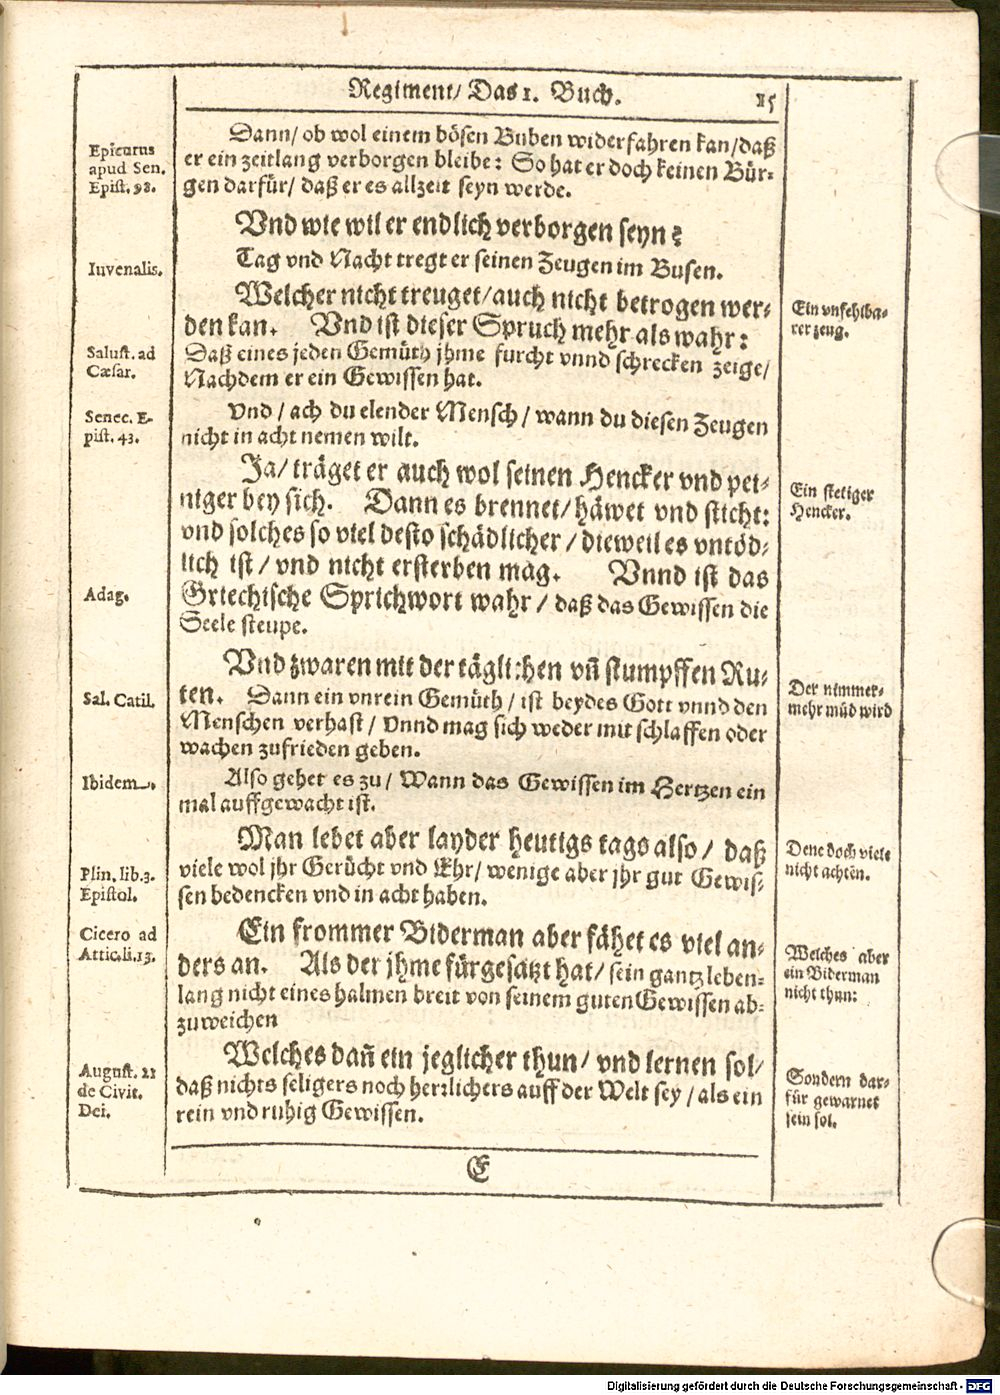 Regiment/ Das 1. Buch. 15
Dann/ ob wol einem bösen Buben widerfahren kan/daß
er ein zeitlang verborgen bleibe: So hat er doch keinen Bür-
gen darfür/ daß er es allzeit seyn werde.
Epicurus
apud Sen.
Epist. 98.
Vnd wie wil er endlich verborgen seyn?
Tag vnd Nacht tregt er seinen Zeugen im Busen.
Iuvenalis.
Welcher nicht treuget/auch nicht betrogen wer-
den kan. Vnd ist dieser Spruch mehr als wahr:
Daß eines jeden Gemüth jhme furcht vnnd schrecken zeige/
Nachdem er ein Gewissen hat.
Ein vnfehlba-
rer zeug.
Salust. ad
Cæsar.
Vnd / ach du elender Mensch / wann du diesen Zeugen
nicht in acht nemen wilt.
Senec. E-
pist. 43.
Ja/ träget er auch wol seinen Hencker vnd pei-
niger bey sich. Dann es brennet/ häwet vnd sticht:
vnd solches so viel desto schädlicher / dieweil es vntöd-
lich ist / vnd nicht ersterben mag. Vnnd ist das
Griechische Sprichwort wahr / daß das Gewissen die
Seele steupe.
Ein stetiger
Hencker.
Adag.
Vnd zwaren mit der täglichen vñ stumpffen Ru-
ten. Dann ein vnrein Gemüth / ist beydes Gott vnnd den
Menschen verhast / Vnnd mag sich weder mit schlaffen oder
wachen zufrieden geben.
Sal. Catil.
Der nimmer-
mehr müd wird
Also gehet es zu / Wann das Gewissen im Hertzen ein
mal auffgewacht ist.
Ibidem.
Man lebet aber layder heutigs tags also / daß
viele wol jhr Gerücht vnd Ehr/ wenige aber jhr gut Gewis-
sen bedencken vnd in acht haben.
Plin. lib. 3.
Epistol.
Dene doch viele
nicht achten.
Ein frommer Biderman aber fähet es viel an-
ders an. Als der jhme fürgesatzt hat/ sein gantz leben-
lang nicht eines halmen breit von seinem guten Gewissen ab-
zuweichen
Cicero ad
Attic. li. 13.
Welches aber
ein Biderman
nicht thun:
Welches dañ ein jeglicher thun/ vnd lernen sol/
daß nichts seligers noch herrlichers auff der Welt sey / als ein
rein vnd ruhig Gewissen.
August. 22
de Civit.
Dei.
Sondern dar-
für gewarnet
sein sol.
E
Digitalisierung gefördert durch die Deutsche Forschungsgemeinschaft - DFG